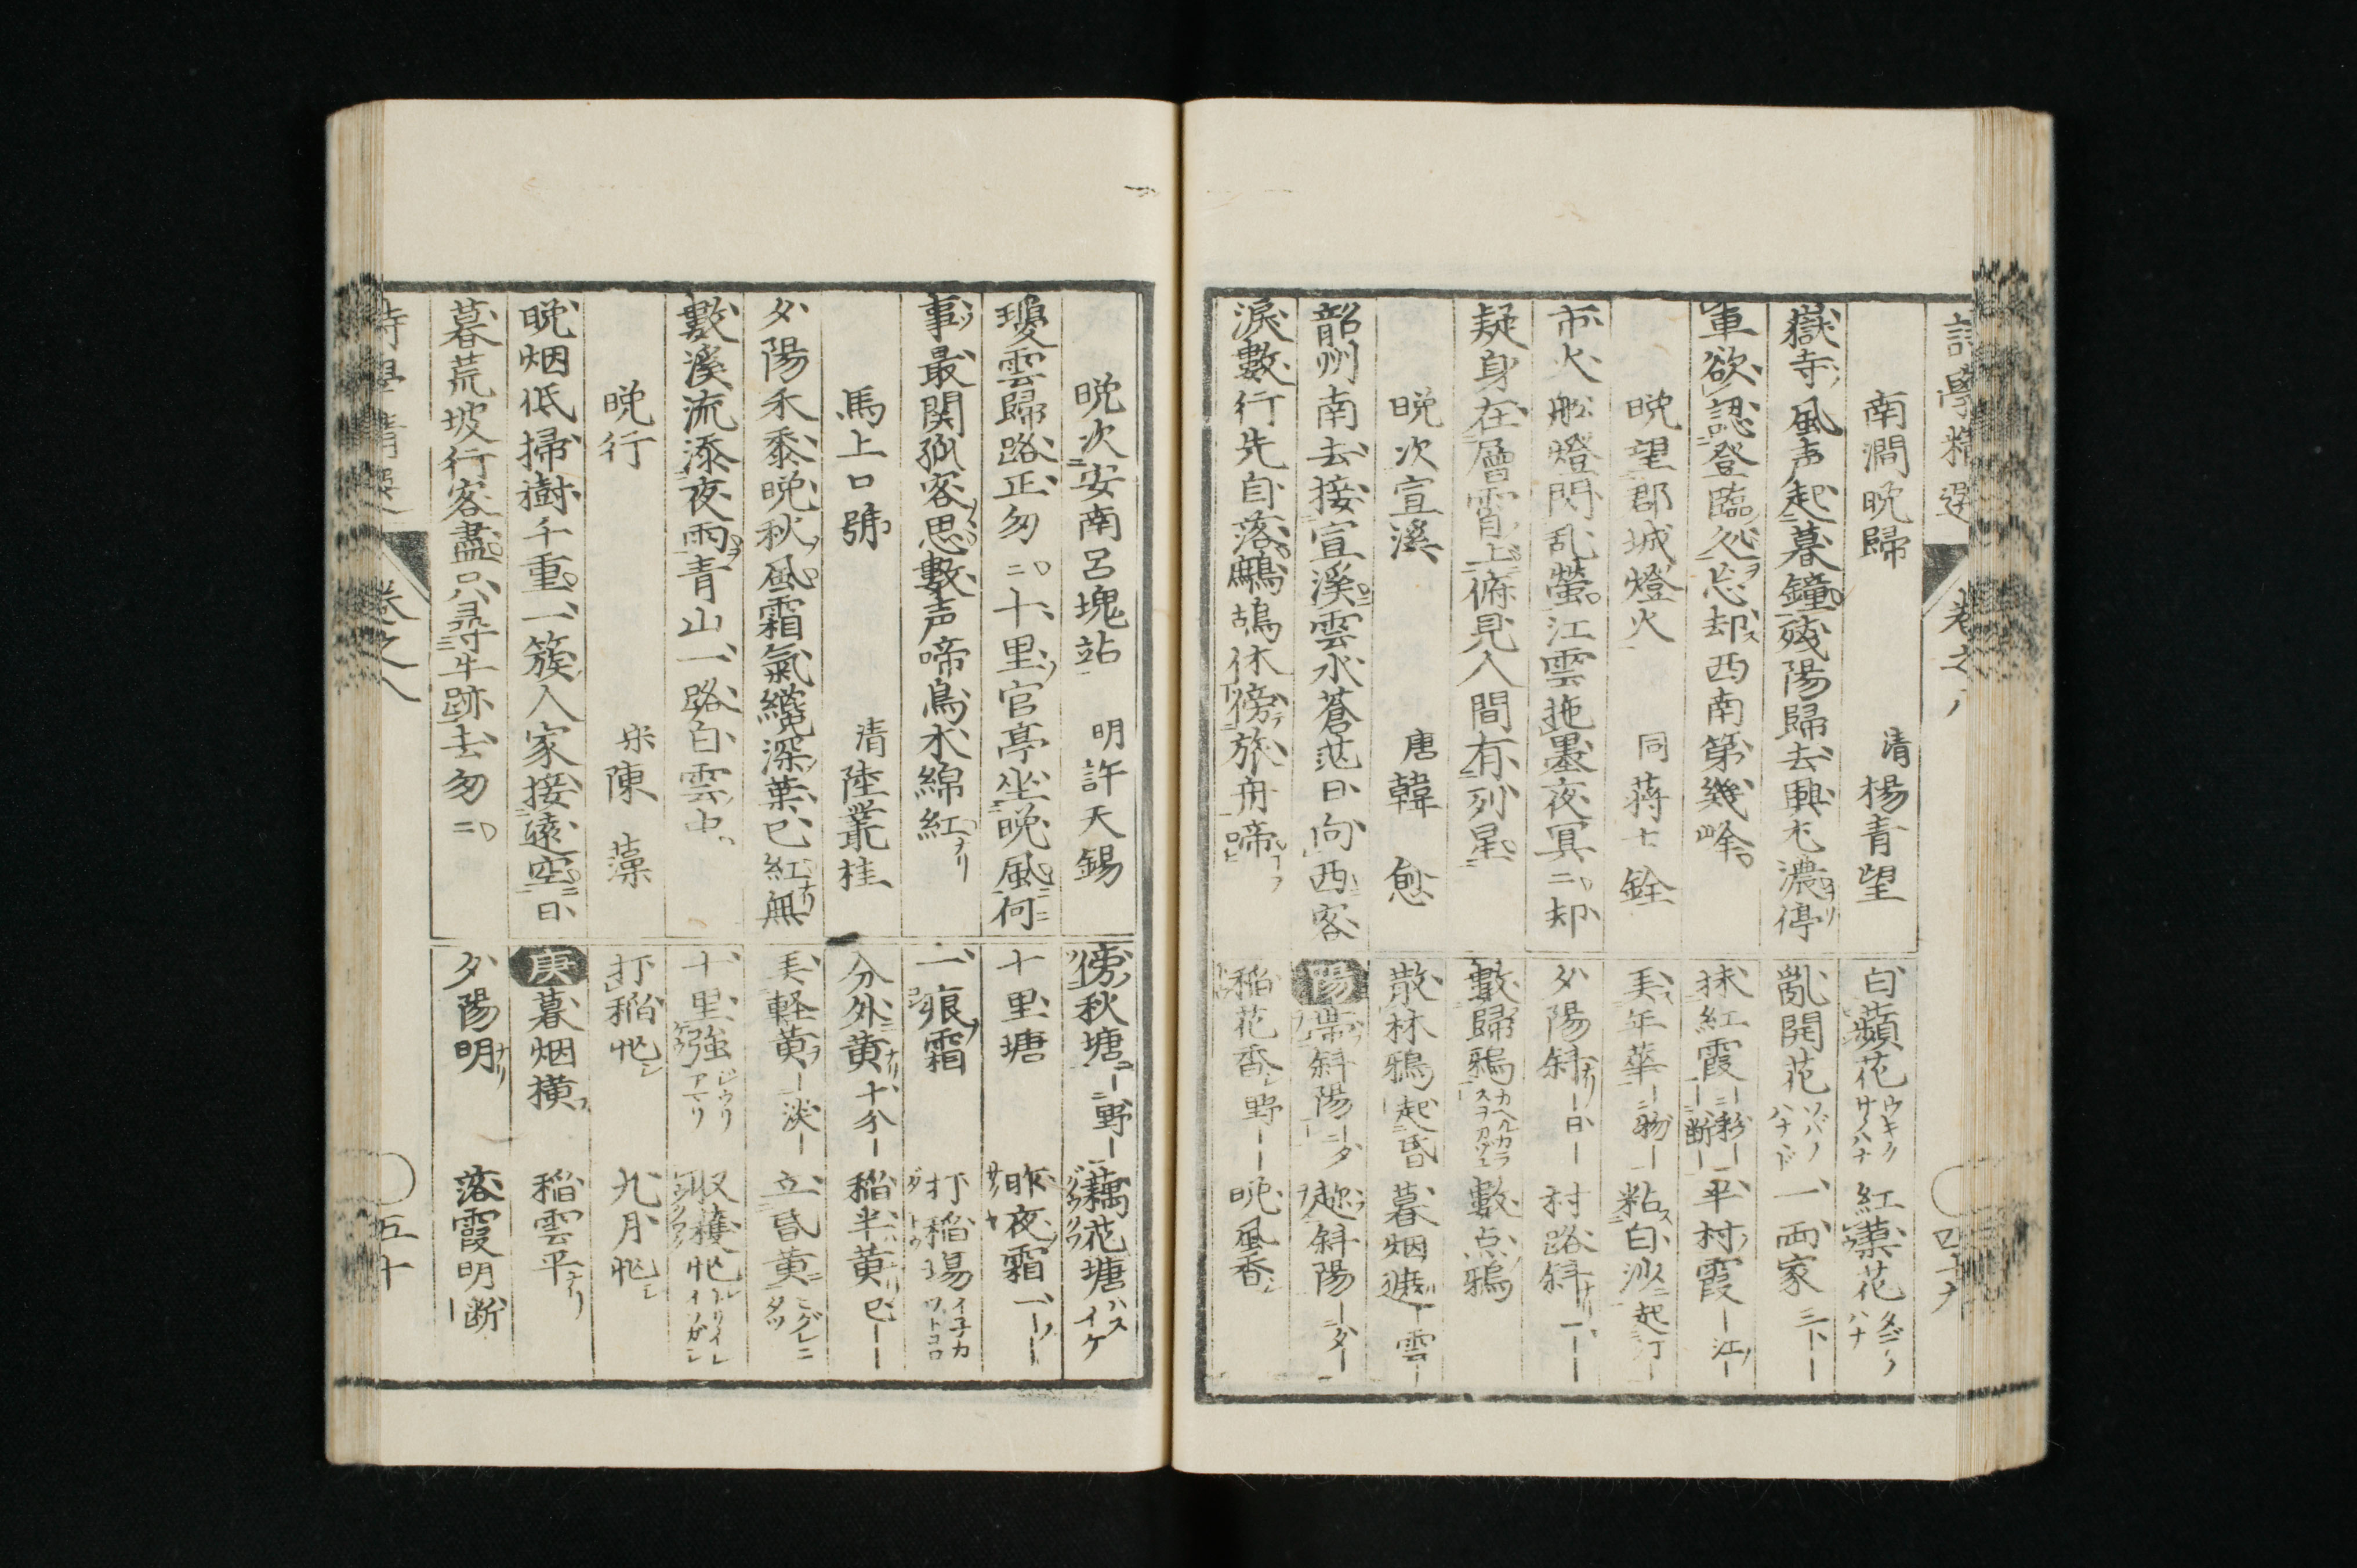 詩學精選 卷之八 四十九
南澗晩歸 清 楊青望
嶽寺風声起暮鐘殘陽歸去興尤濃停
車欲認登臨処忘却西南第幾峰
晩望郡城燈火 同 蒋士銓
市火船燈閃乱螢江雲拖墨夜冥〻却
疑身在層霄上俯見人間有列星
晩次宣溪 唐 韓愈
韶州南去接宣溪雲水蒼茫日向西客
淚數行先自落鷓鴣休傍旅舟啼
白蘋花 ウキクサノハナ 紅蓼花 タデノハナ
亂開花 一両家
抹紅霞 平村霞
美年華 粘白沙
夕陽斜 村路斜
數歸鴉 數点鴉
散林鴉 起昏 暮烟遮
陽 帶斜陽 趂斜陽
稲花香 野 晩風香
晩次安南呂塊站 明 許天錫
瓊雲歸路正匆〻十里官亭坐晩風何
事最関孤客思數声啼鳥木綿紅
馬上口號 清 陸叢桂
夕陽禾黍晩秋風霜氣纔深葉已紅無
數溪流添夜雨青山一路白雲中
晩行 宋 陳藻
晩烟低掃樹千重一簇人家接遠空日
暮荒坡行客盡只尋牛跡去匆〻
傍秋塘 野 藕花塘 ハスイケ
十里塘 昨夜霜
一痕霜 打稲場
分外黄 十分 稲半黄
美軽黄 淡 立昏黄
十里強 収穫忙
打稲忙 九月忙
庚 暮烟横 稲雲平
夕陽明 落霞明 断
詩學精選 卷之八 五十